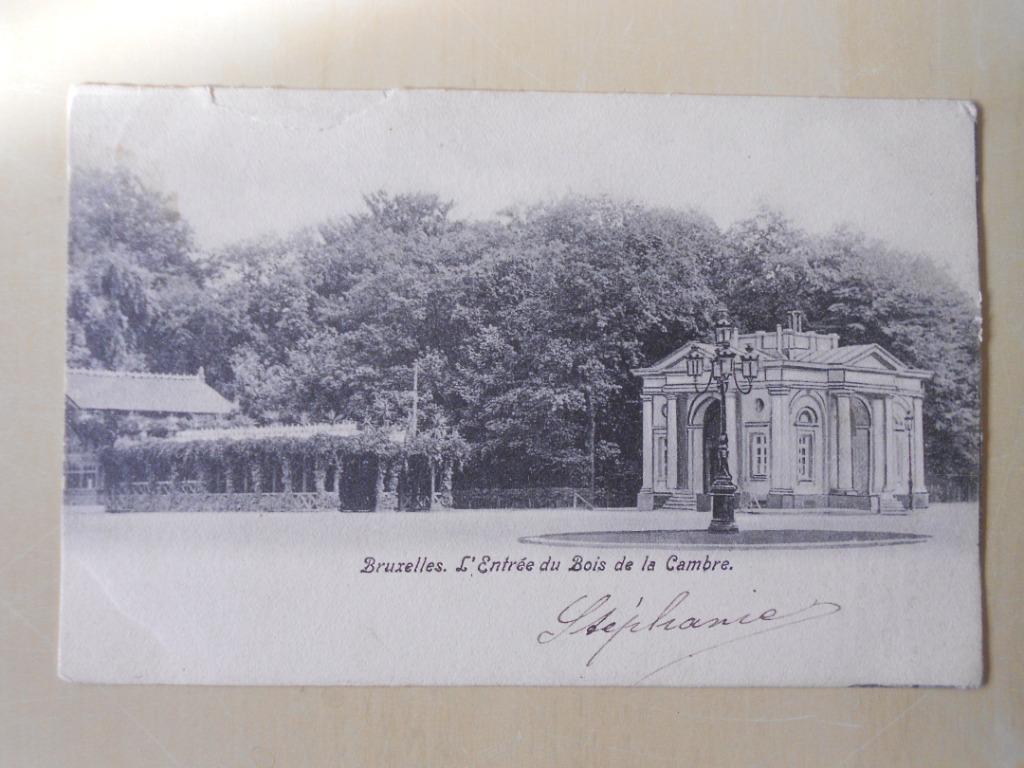 Bruxelles. L'Entrée du Bois de la Cambre.
Stéphanie